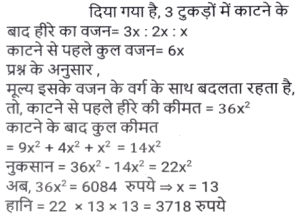 दिया गया है, 3 टुकड़ों में काटने के
बाद हीरे का वजन= 3x : 2x : x
काटने से पहले कुल वजन= 6x
प्रश्न के अनुसार ,
मूल्य इसके वजन के वर्ग के साथ बदलता रहता है,
तो, काटने से पहले हीरे की कीमत = 36x²
काटने के बाद कुल कीमत
= 9x² + 4x² + x² = 14x²
नुकसान = 36x² - 14x² = 22x²
अब, 36x² = 6084 रुपये ⇒ x = 13
हानि = 22 × 13 × 13 = 3718 रुपये